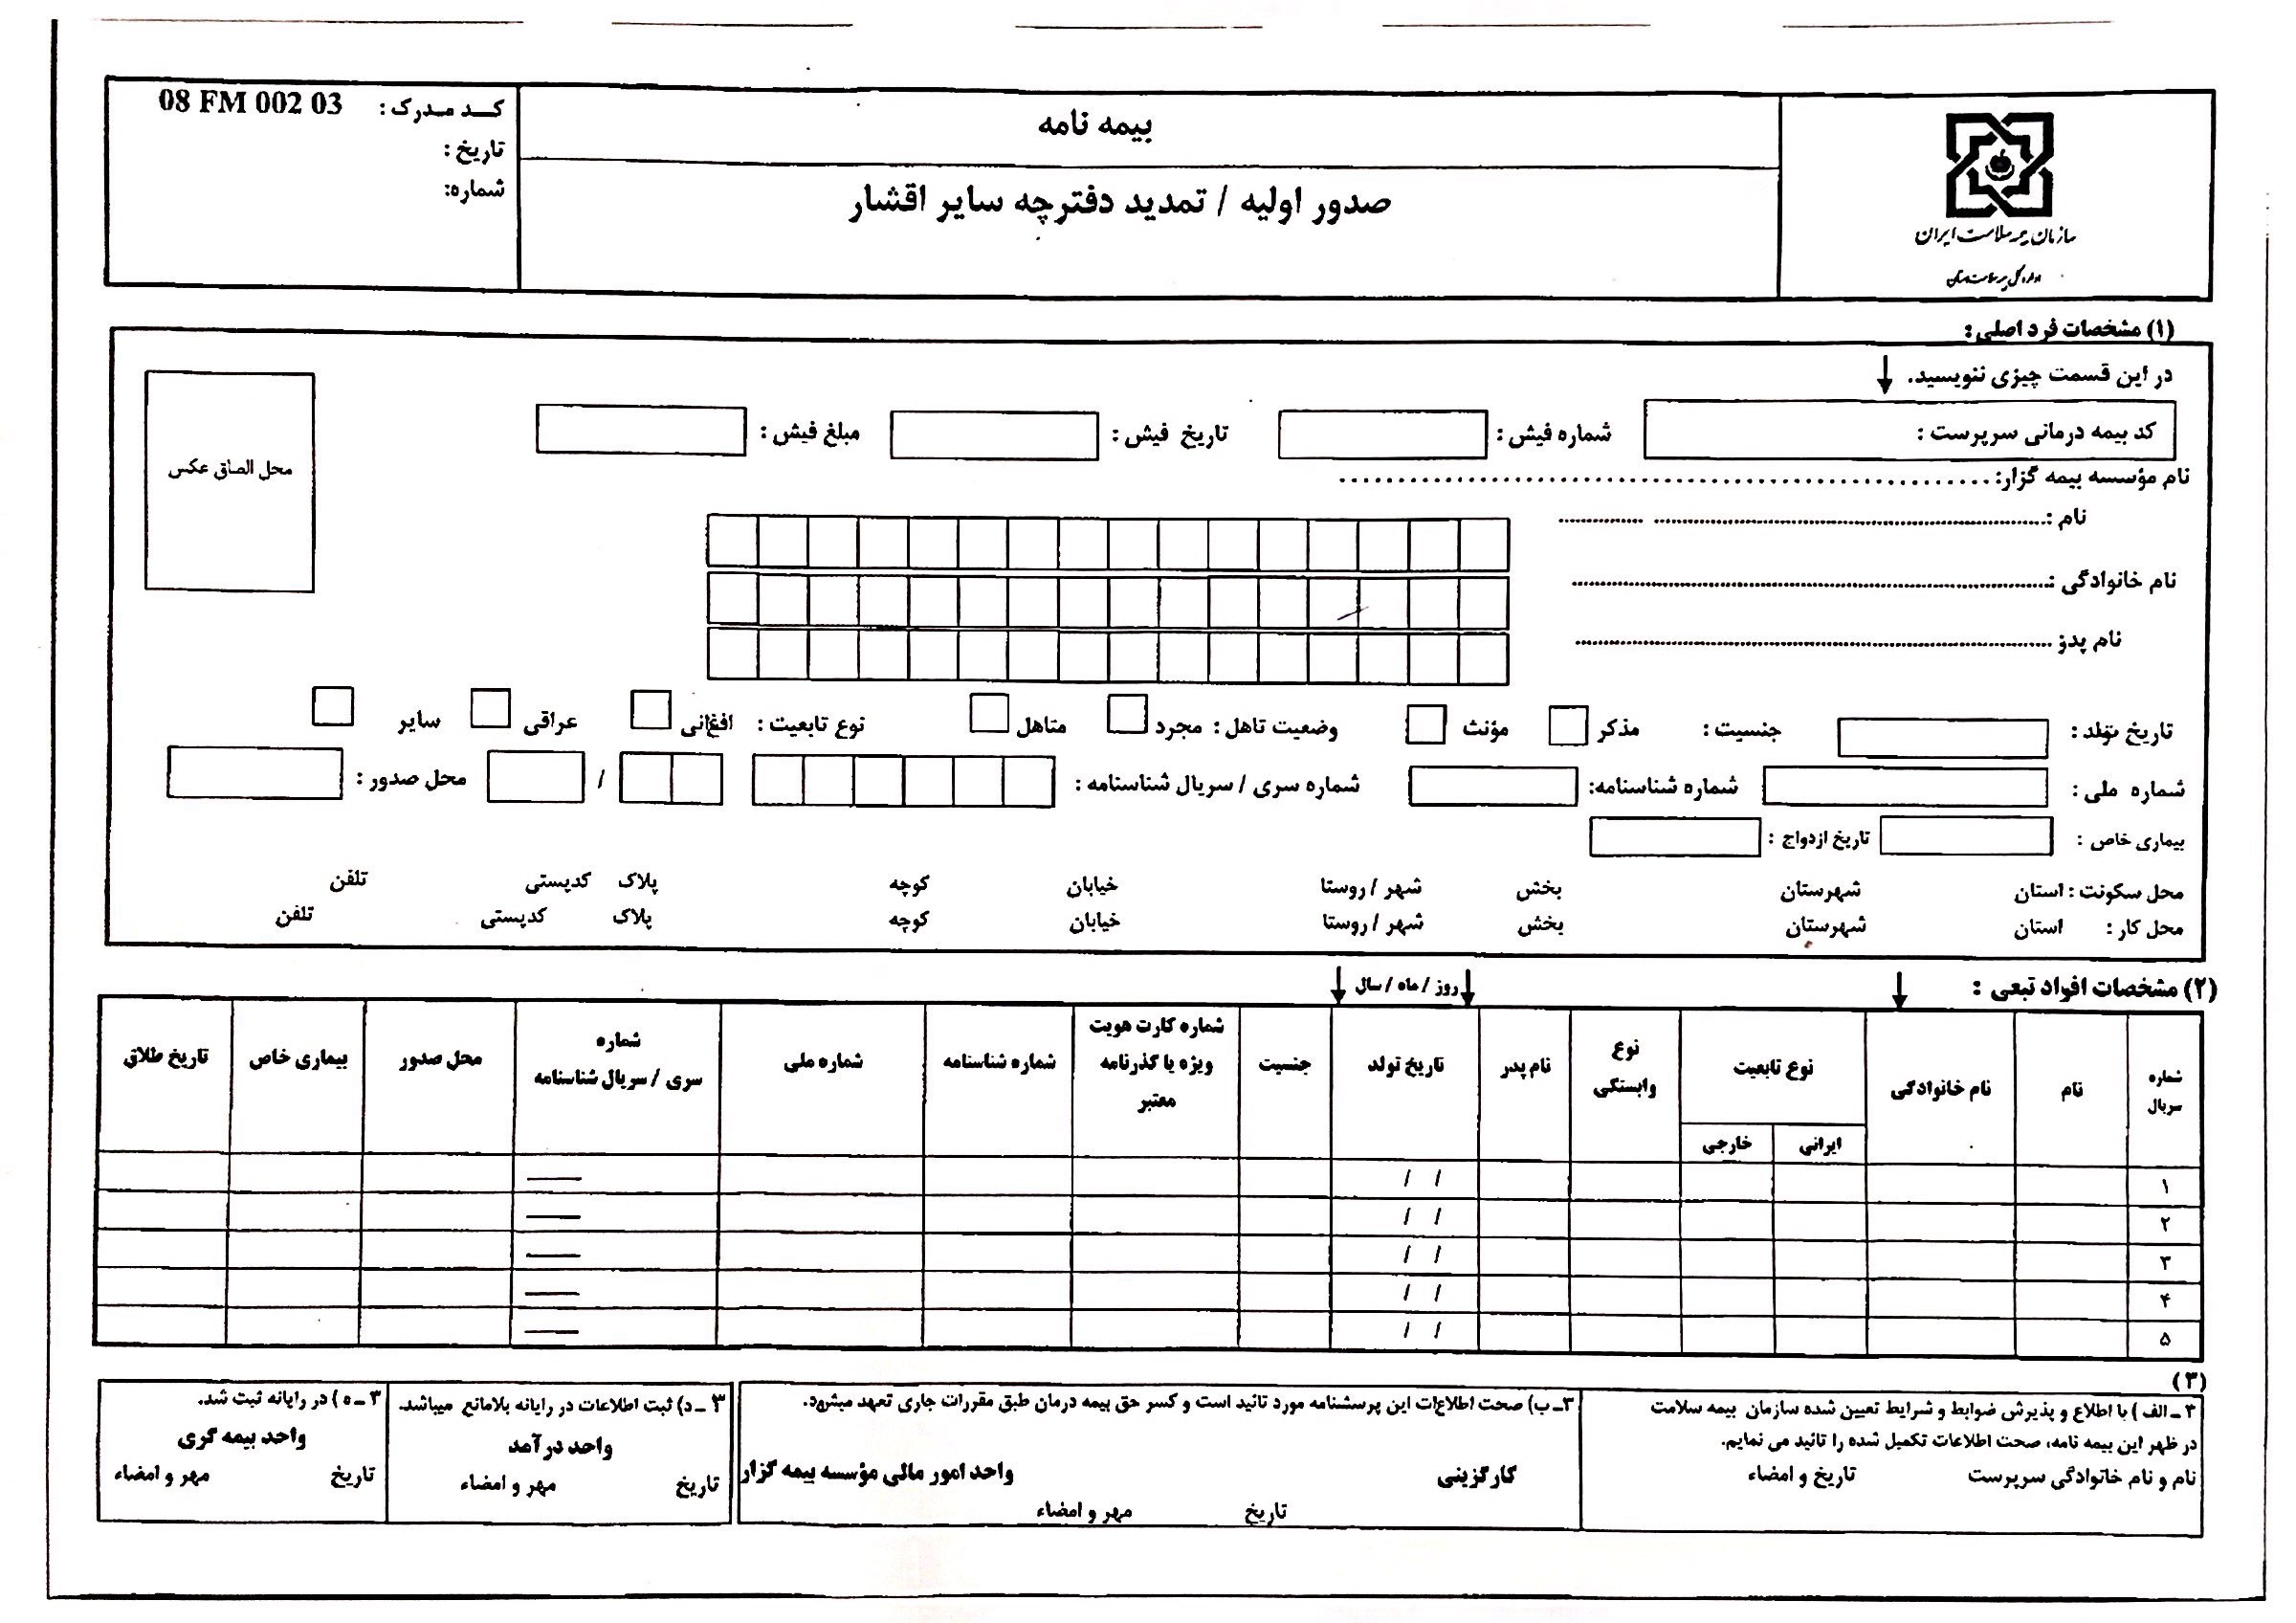 سازمان بیمه سلامت ایران
بیمه نامه
صدور اولیه / تمدید دفترچه سایر اقشار
کد مدرک : 08 FM 002 03
تاریخ :
شماره:
(۱) مشخصات فرد اصلی :
در این قسمت چیزی ننویسید.
کد بیمه درمانی سرپرست : شماره فیش : تاریخ فیش : مبلغ فیش :
محل الصاق عکس
نام مؤسسه بیمه گزار:
نام :
نام خانوادگی :
نام پدر
تاریخ تولد : جنسیت : مذکر مؤنث وضعیت تاهل : مجرد متاهل نوع تابعیت : افغانی عراقی سایر
شماره ملی : شماره شناسنامه: شماره سری / سریال شناسنامه : / محل صدور :
بیماری خاص : تاریخ ازدواج :
محل سکونت : استان شهرستان بخش شهر / روستا خیابان کوچه پلاک کدپستی تلفن
محل کار : استان شهرستان بخش شهر / روستا خیابان کوچه پلاک کدپستی تلفن
(۲) مشخصات افراد تبعی :
روز / ماه / سال
شماره سریال نام نام خانوادگی نوع تابعیت نوع وابستگی نام پدر تاریخ تولد جنسیت شماره کارت هویت ویژه یا گذرنامه معتبر شماره شناسنامه شماره ملی شماره سری / سریال شناسنامه محل صدور بیماری خاص تاریخ طلاق
ایرانی خارجی
۱ / /
۲ / /
۳ / /
۴ / /
۵ / /
(۳)
۳ ـ الف ) با اطلاع و پذیرش ضوابط و شرایط تعیین شده سازمان بیمه سلامت
در ظهر این بیمه نامه، صحت اطلاعات تکمیل شده را تائید می نمایم.
نام و نام خانوادگی سرپرست تاریخ و امضاء
۳ـ ب) صحت اطلاعات این پرسشنامه مورد تائید است و کسر حق بیمه درمان طبق مقررات جاری تعهد میشود.
کارگزینی واحد امور مالی مؤسسه بیمه گزار
تاریخ مهر و امضاء
۳ ـ د) ثبت اطلاعات در رایانه بلامانع میباشد.
واحد درآمد
تاریخ مهر و امضاء
۳ ـ ه ) در رایانه ثبت شد.
واحد بیمه گری
تاریخ مهر و امضاء